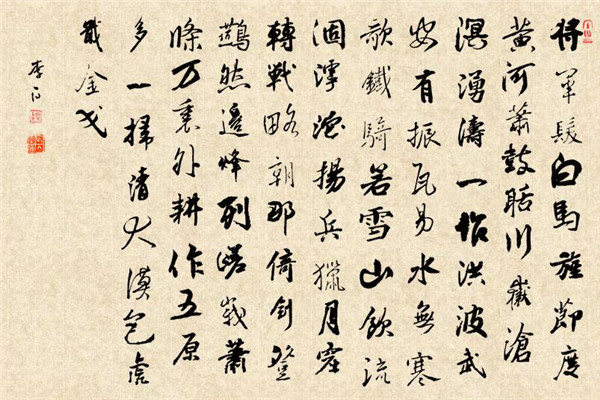 將軍髮白馬旌節度
黄河蕭鼓聒川嶽滄
溟湧濤一作洪波武
安有振瓦易水無寒
歌鐵騎若雪山飲流
涸滹沱揚兵獵月窟
轉戰略朝那倚劍登
鷰然邊烽列嵯峨蕭
條万裏外耕作五原
多一掃清大漠包虎
戢金戈
李白